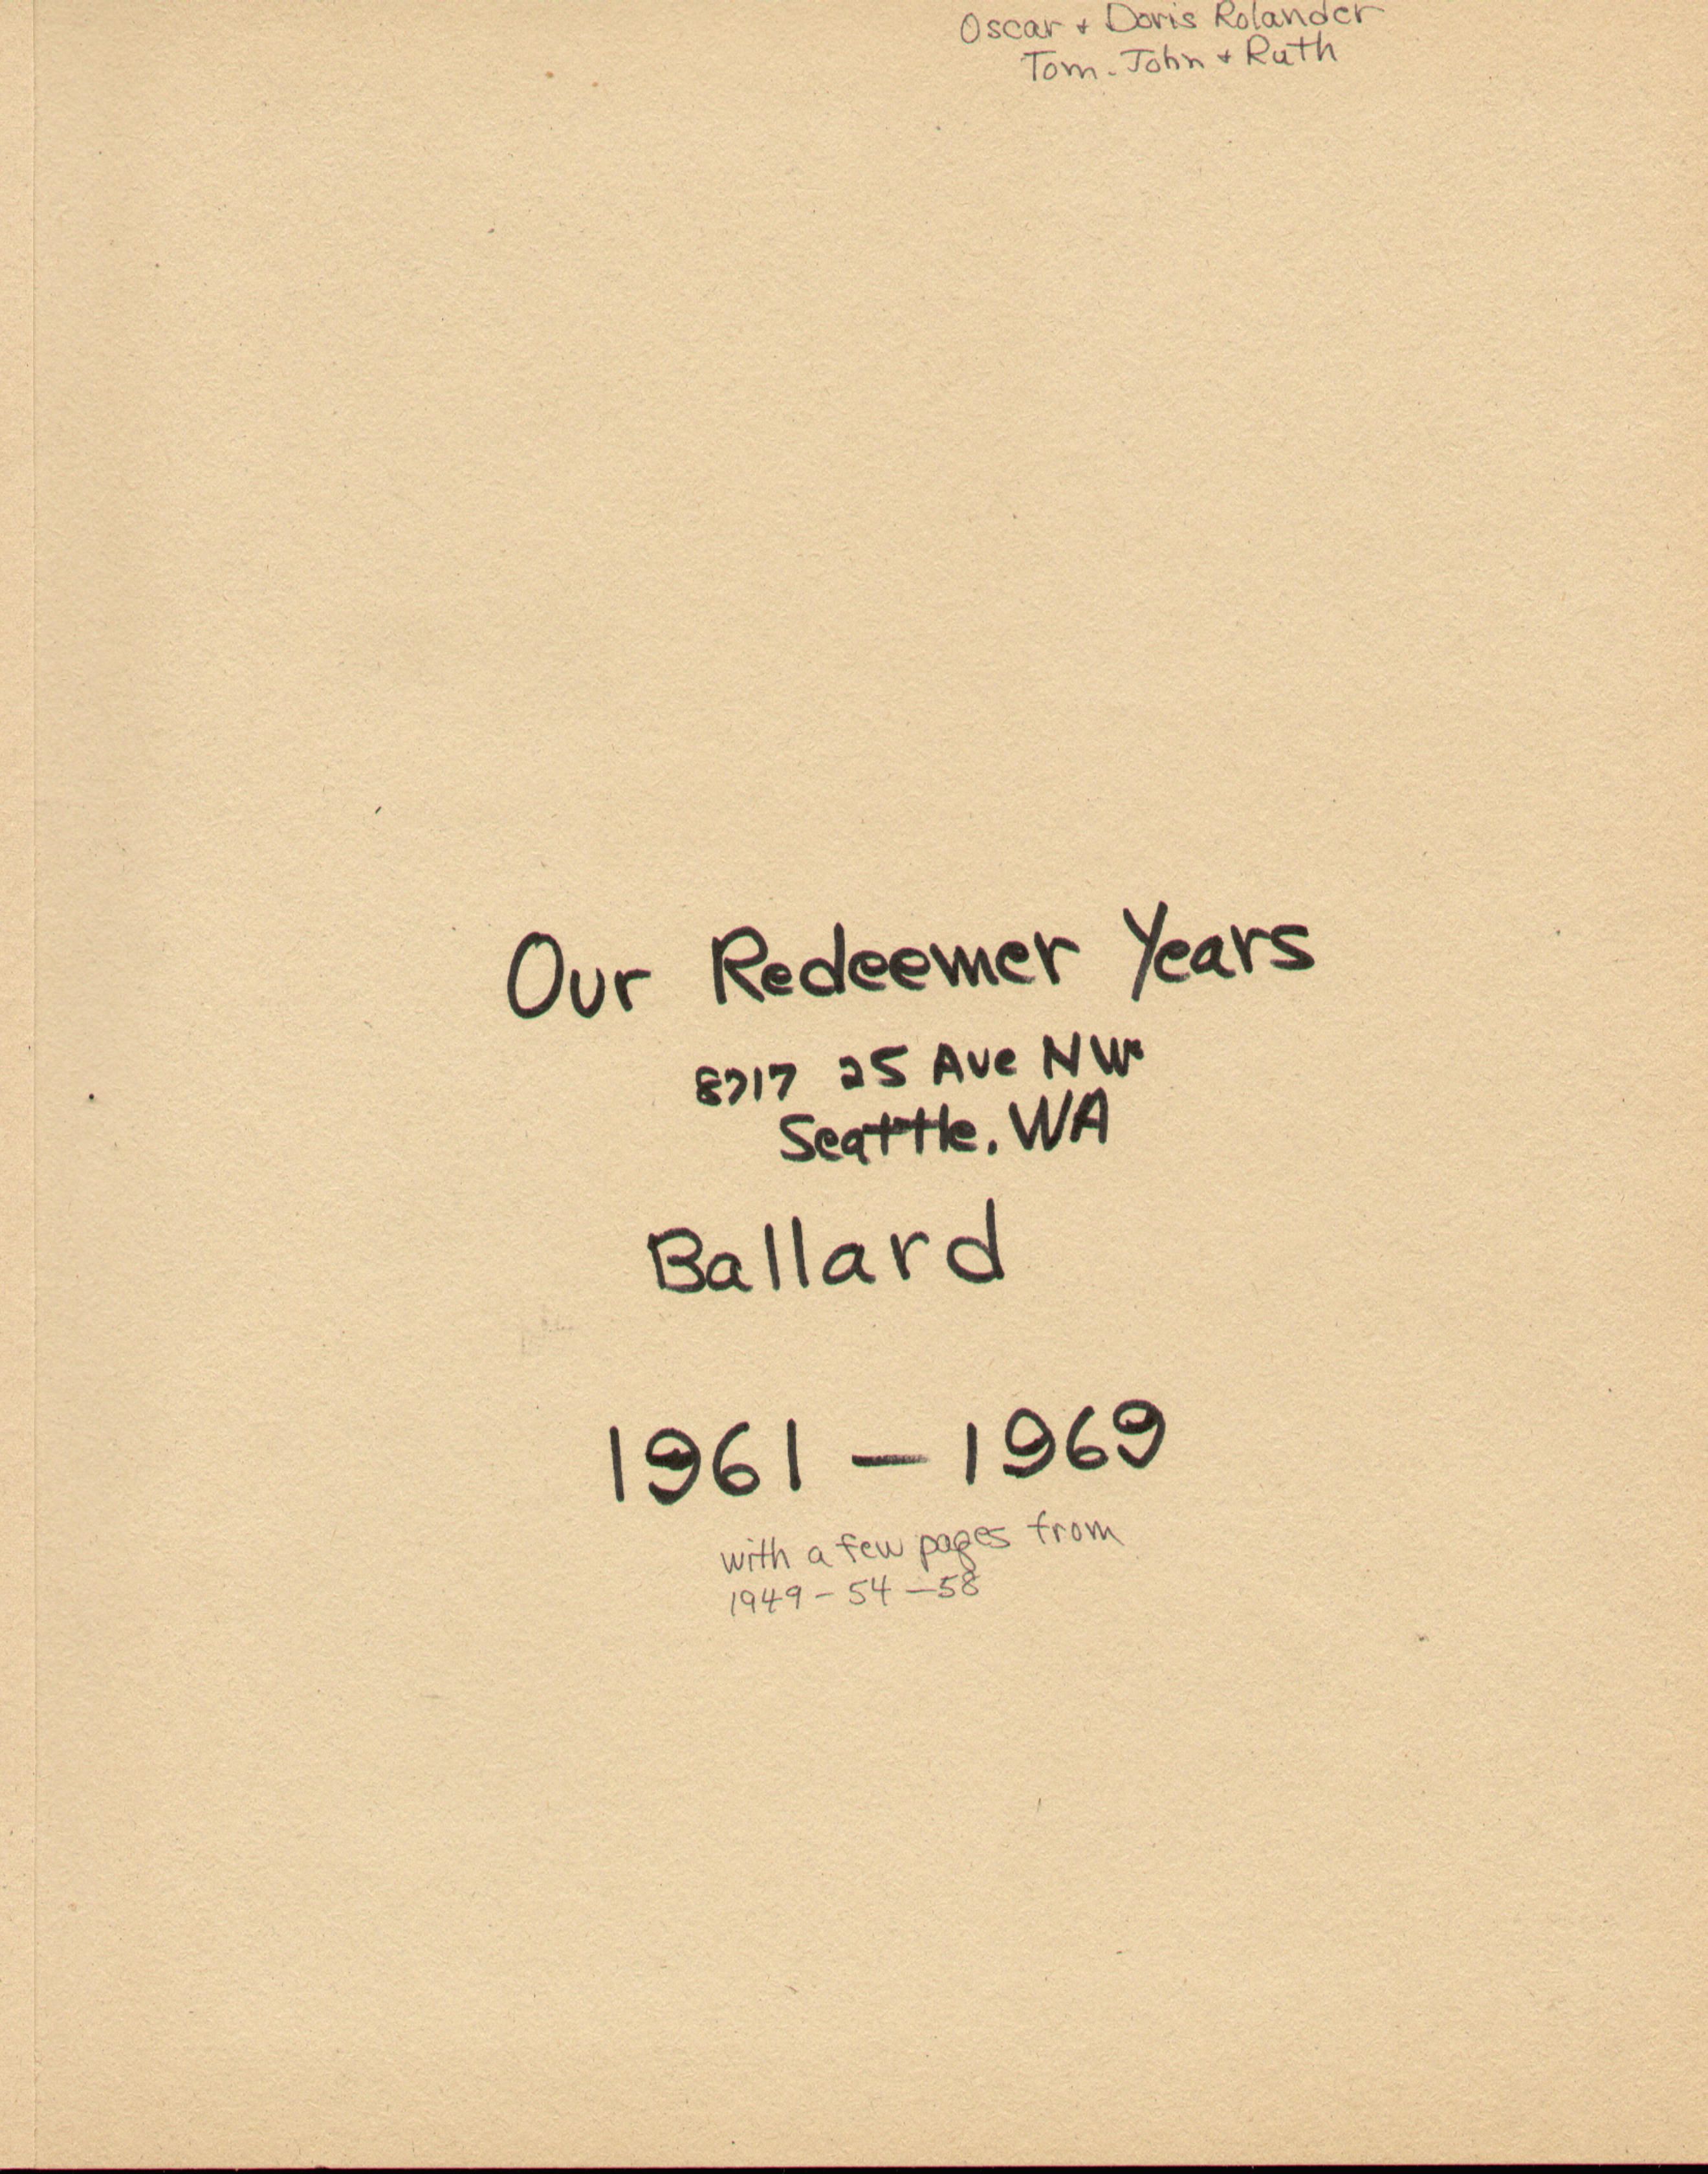 Oscar + Doris Rolander
Tom. John + Ruth
Our Redeemer Years
8717 25 Ave NW
Seattle. WA
Ballard
1961 — 1969
with a few pages from
1949 - 54 - 58